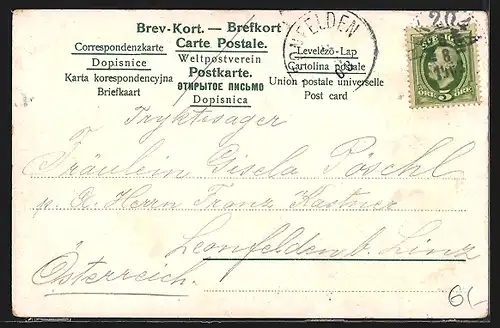 Brev-Kort. — Brefkort
Carte Postale.
Correspondenzkarte
Weltpostverein
Levelező-Lap
Dopisnice
Postkarte.
Cartolina postale
Karta korespondencyjna
ОТКРЫТОЕ ПИСЬМО
Union postale universelle
Briefkaart
Dopisnica
Post card
ONFELDEN
202
5 ÖRE 5
Tryktesager
Fräulein Gisela Pöschl
p. A. Herrn Franz Kastner
Leonfelden b. Linz
Österreich.
6/-